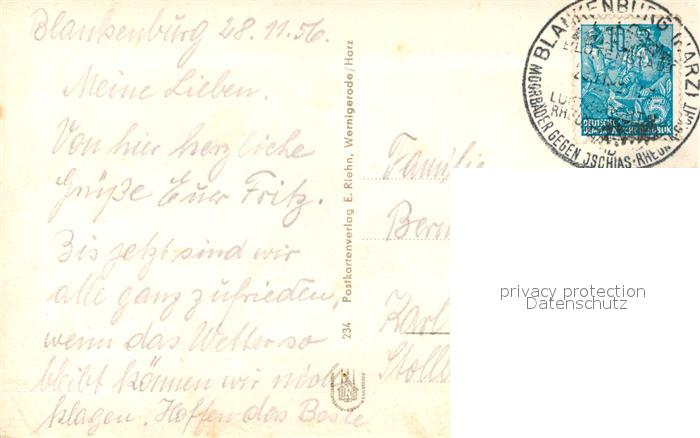 Blankenburg 28.11.56.
Meine Lieben.
Von hier herzliche
Grüße Euer Fritz.
Bis jetzt sind wir
alle ganz zufrieden,
wenn das Wetter so
bleibt können wir nicht
klagen. Hoffen das Beste
234 Postkartenverlag E. Riehn, Wernigerode/Harz
BLANKENBURG (HARZ)
MOORBÄDER GEGEN JSCHIAS-RHEUMA
DEUTSCHE
DEMOKRATISCHE REPUBLIK
Familie
Karl
privacy protection
Datenschutz